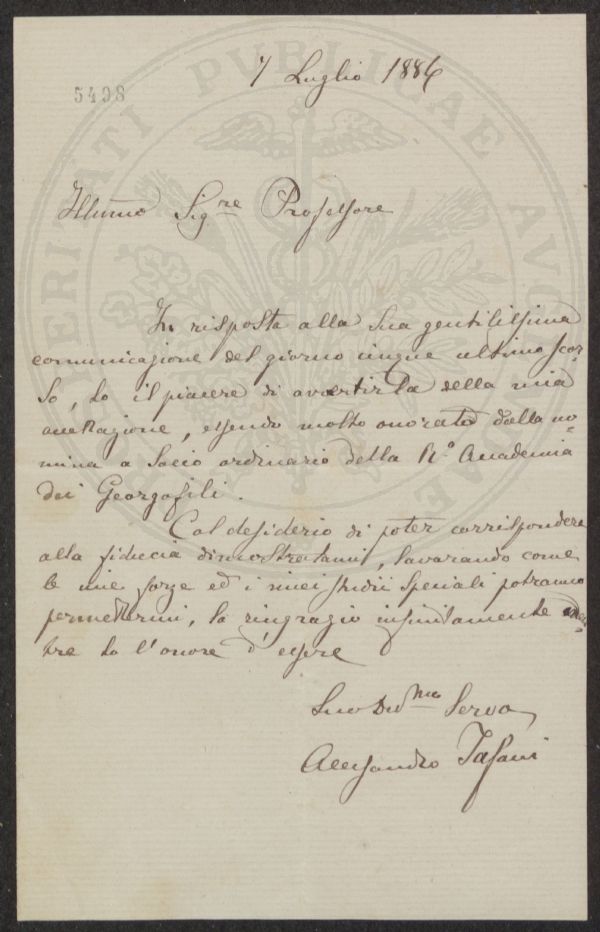 7 Luglio 1886
5498
PROSPERITATI PUBLICAE AUGENDAE
Illmo Sigre Professore
In risposta alla Sua gentilissima
comunicazione del giorno cinque ultimo scor-
so, ho il piacere di avertirla della mia
accettazione, essendo molto onorato dalla no-
mina a Socio ordinario della R.a Accademia
dei Georgofili.
Col desiderio di poter corrispondere
alla fiducia dimostratami, lavorando come
le mie forze ed i miei studii speciali potranno
permettermi, la ringrazio infinitamente men-
tre ho l'onore d'essere
Suo Devmo Servo
Alessandro Tafani